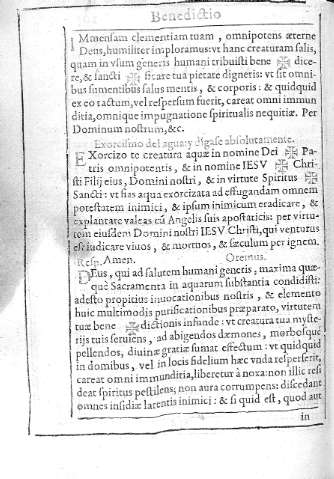 Benedictio
IMmensam clementiam tuam, omnipotens æterne
Deus, humiliter imploramus: vt hanc creaturam salis,
quam in vsum generis humani tribuisti bene ✠ dice-
re, & sancti ✠ ficare tua pietate digneris: vt sit omni-
bus sumentibus salus mentis, & corporis: & quidquid
ex eo tactum, vel respersum fuerit, careat omni immun
ditia, omnique impugnatione spiritualis nequitiæ. Per
Dominum nostrum, &c.
Exorcismo del agua: y digase absolutamente.
EXorcizo te creatura aquæ in nomine Dei ✠ Pa-
tris omnipotentis, & in nomine IESV ✠ Chri-
sti Filij eius, Domini nostri, & in virtute Spiritus ✠
Sancti: vt fias aqua exorcizata ad effugandam omnem
potestatem inimici, & ipsum inimicum eradicare, &
explantare valeas cũ Angelis suis apostaticis: per virtu-
tem eiusdem Domini nostri IESV Christi, qui venturus
est iudicare viuos, & mortuos, & sæculum per ignem.
Resp. Amen. Oremus.
DEus, qui ad salutem humani generis, maxima quæ-
què Sacramenta in aquarum substantia condidisti:
adesto propitius inuocationibus nostris, & elemento
huic multimodis purificationibus præparato, virtutem
tuæ bene ✠ dictionis infunde: vt creatura tua myste-
rijs tuis seruiens, ad abigendos dæmones, morbosque
pellendos, diuinæ gratiæ sumat effectum: vt quidquid
in domibus, vel in locis fidelium hæc vnda resperserit,
careat omni immunditia, liberetur à noxa: non illic resi
deat spiritus pestilens; non aura corrumpens: discedant
omnes insidiæ latentis inimici: & si quid est, quod aut
in